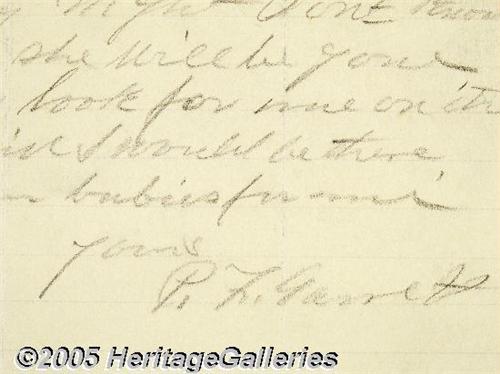 Night Dont Know
she will be gone
look for me on the
I would be there
babies for me
yours
P. F. Garrett
©2005 HeritageGalleries